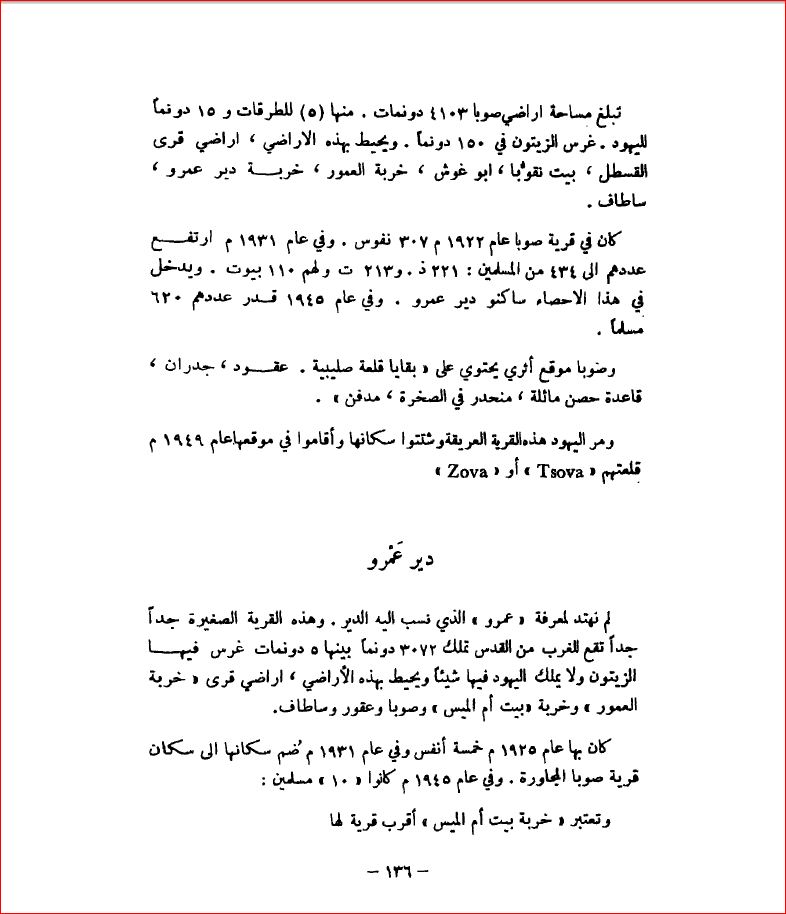 تبلغ مساحة اراضي صوبا ٤١٠٣ دونمات . منها (٥) للطرقات و ١٥ دونماً
لليهود . غرس الزيتون في ١٥٠ دونماً . ويحيط بهذه الاراضي ، اراضي قرى
القسطل ، بيت نقوبا ، ابو غوش ، خربة العمور ، خربـــة دير عمرو ،
ساطاف .
كان في قرية صوبا عام ١٩٢٢ م ٣٠٧ نفوس . وفي عام ١٩٣١ م ارتفـــع
عددهم الى ٤٣٤ من المسلمين : ٢٢١ ذ . و٢١٣ ت ولهم ١١٠ بيوت . ويدخل
في هذا الاحصاء ساكنو دير عمرو . وفي عام ١٩٤٥ قـدر عددهم ٦٢٠
مسلماً .
وصوبا موقع أثري يحتوي على « بقايا قلعة صليبية . عقـــود ، جدران ،
قاعدة حصن مائلة ، منحدر في الصخرة ، مدفن » .
ومر اليهود هذه القرية العريقة وشتتوا سكانها وأقاموا في موقعها عام ١٩٤٩ م
قلعتهم « Tsova » أو « Zova »
دير عَمْرو
لم نهتد لمعرفة « عمرو » الذي نسب اليه الدير . وهذه القرية الصغيرة جداً
جداً تقع للغرب من القدس تملك ٣٠٧٢ دونماً بينها ٥ دونمات غرس فيهـــا
الزيتون ولا يملك اليهود فيها شيئاً ويحيط بهذه الأراضي ، اراضي قرى « خربة
العمور » وخربة «بيت أم الميس » وصوبا وعقور وساطاف.
كان بها عام ١٩٢٥ م خمسة أنفس وفي عام ١٩٣١ م ضُم سكانها الى سكان
قرية صوبا المجاورة . وفي عام ١٩٤٥ م كانوا « ١٠ » مسلمين :
وتعتبر « خربة بيت أم الميس » أقرب قرية لها
– ١٣٦ –